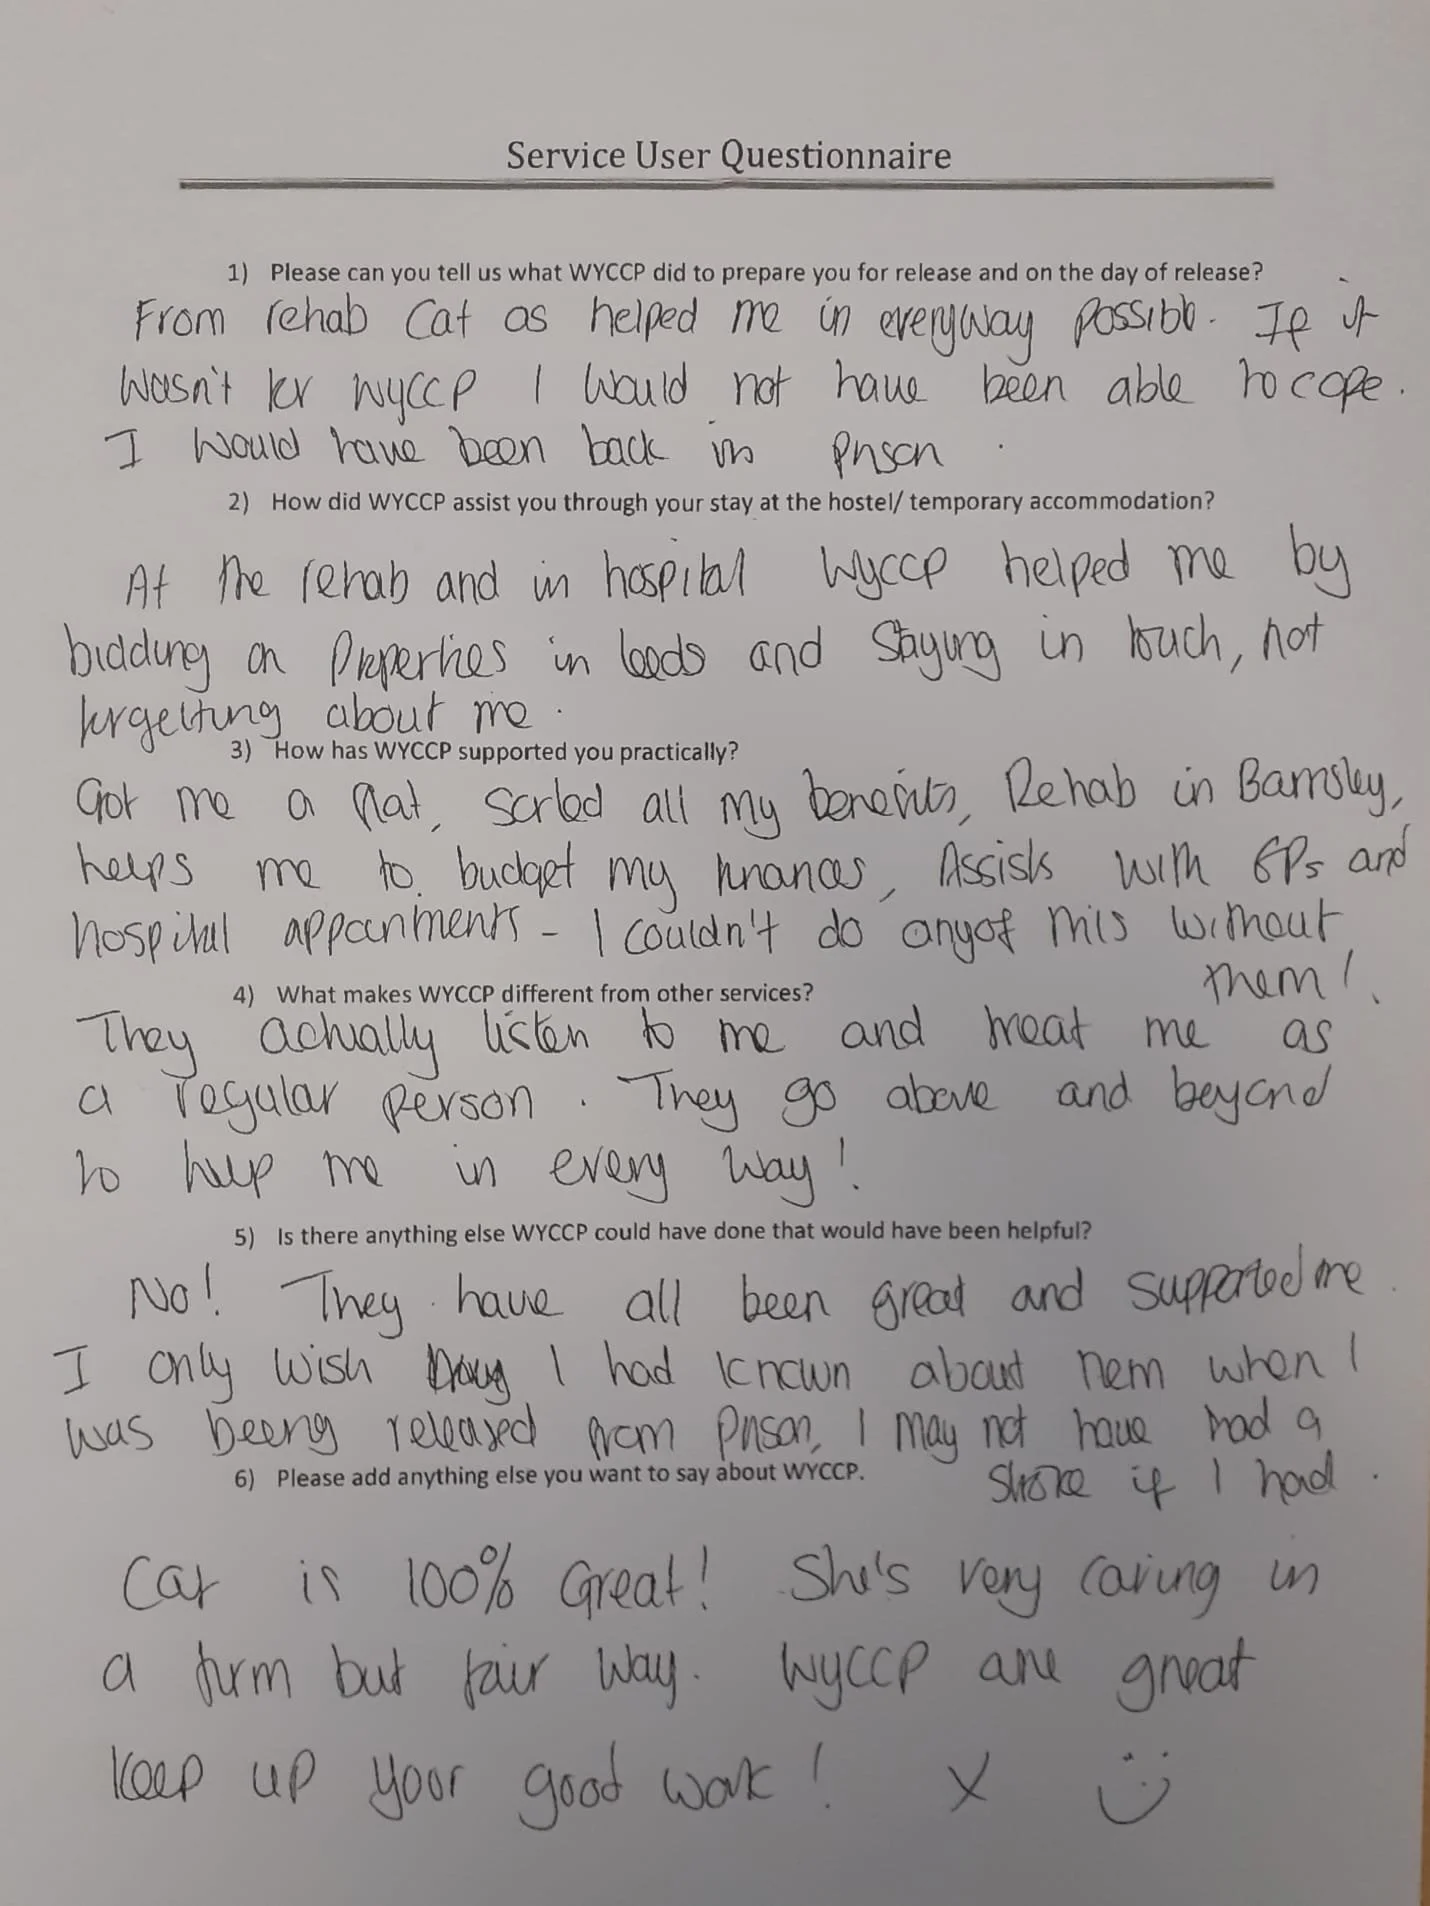 Service User Questionnaire
1) Please can you tell us what WYCCP did to prepare you for release and on the day of release?
From rehab Cat as helped me in everyway possible. If it
wasn't for WYCCP I would not have been able to cope.
I would have been back in prison.
2) How did WYCCP assist you through your stay at the hostel/ temporary accommodation?
At the rehab and in hospital WYCCP helped me by
bidding on properties in leeds and staying in touch, not
forgetting about me.
3) How has WYCCP supported you practically?
Got me a flat, sorted all my benefits, Rehab in Barnsley,
helps me to budget my finances, Assists with GPs and
hospital appointments - I couldn't do anyof this without
them!
4) What makes WYCCP different from other services?
They actually listen to me and treat me as
a regular person. They go above and beyond
to help me in every way!
5) Is there anything else WYCCP could have done that would have been helpful?
No! They have all been great and supported me.
I only wish I had known about them when I
was being released from prison, I may not have had a
stroke if I had.
6) Please add anything else you want to say about WYCCP.
Cat is 100% Great! She's very caring in
a firm but fair way. WYCCP are great
Keep up your good work! X